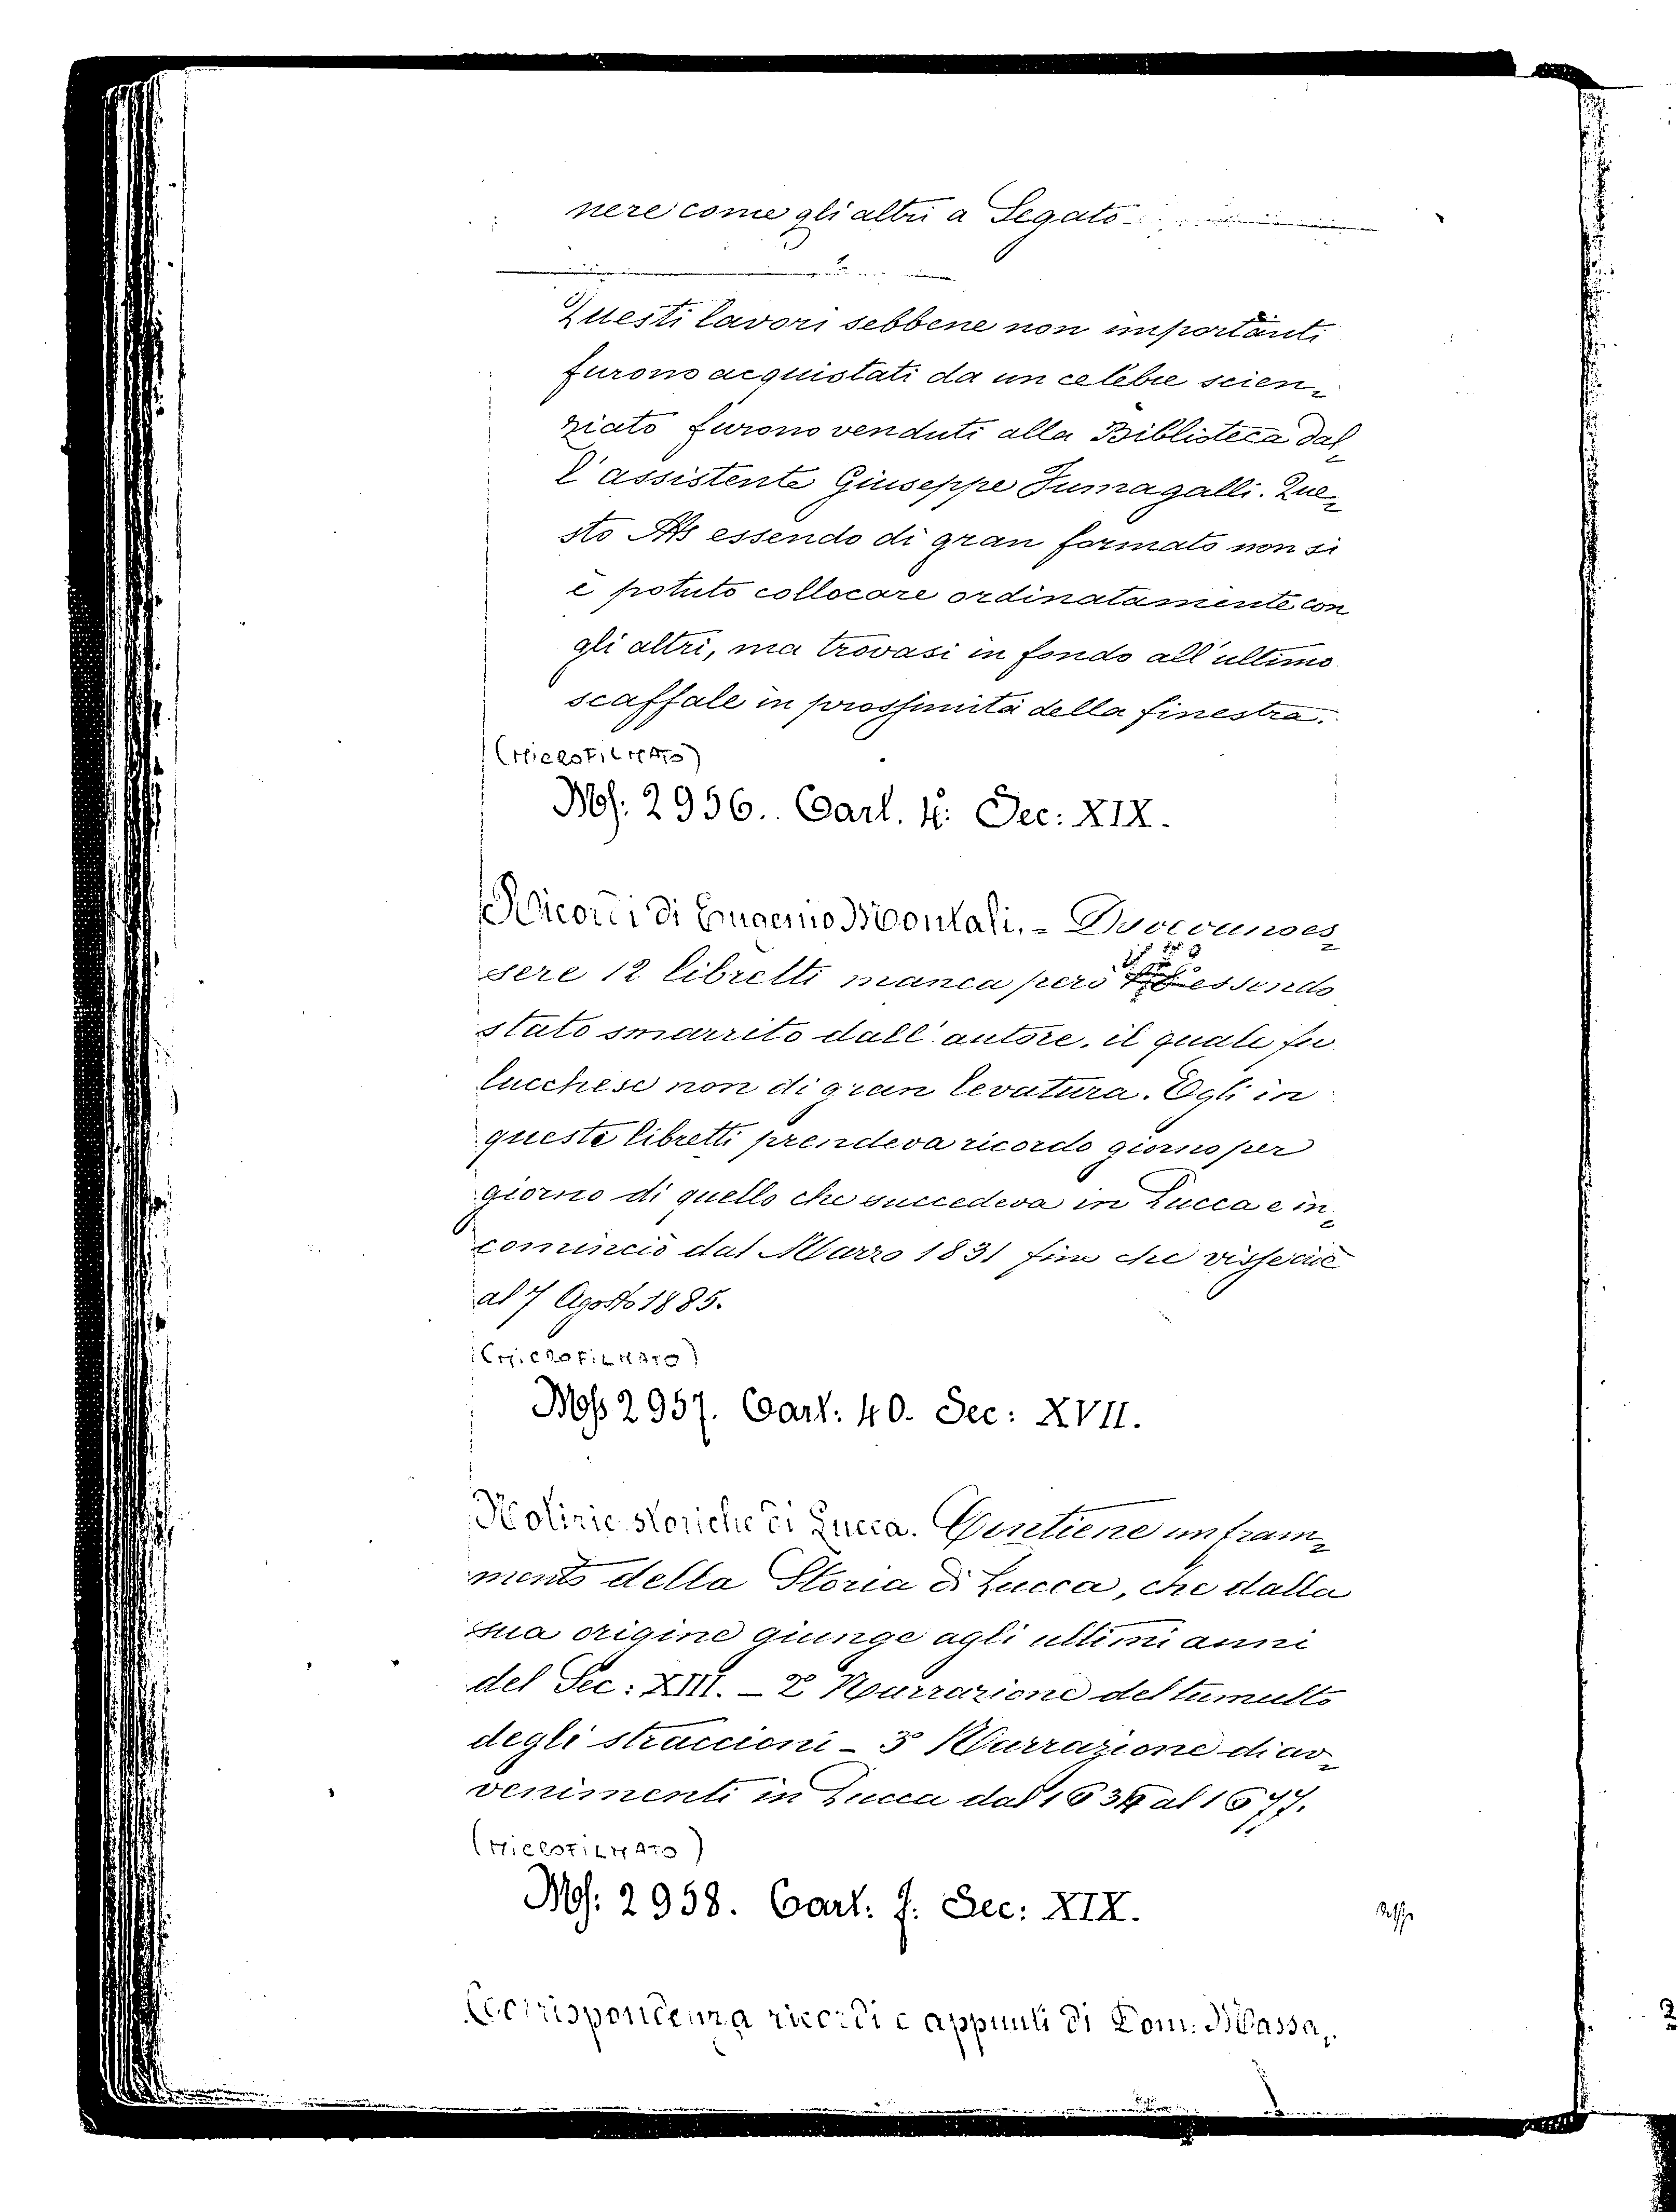 nere come gli altri a Segato
Questi lavori sebbene non importanti
furono acquistati da un celebre scien=
ziato furono venduti alla Biblioteca dal=
l'assistente Giuseppe Fumagalli. Que=
sto Ms essendo di gran formato non si
è potuto collocare ordinatamente con
gli altri, ma trovasi in fondo all'ultimo
scaffale in prossimità della finestra.
(MICROFILMATO)
Ms: 2956. Cart. 4: Sec: XIX.
Ricordi di Eugenio Montali. - Dovevano es=
sere 12 libretti manca però essendo
stato smarrito dall'autore, il quale fu
lucchese non di gran levatura. Egli in
questi libretti prendeva ricordo giorno per
giorno di quello che succedeva in Lucca e in=
cominciò dal Marzo 1831 fino che visse cioè
al 7 Agosto 1885.
(MICROFILMATO)
Mss 2957. Cart: 40. Sec: XVII.
Notizie storiche di Lucca. Contiene un fram=
mento della Storia di Lucca, che dalla
sua origine giunge agli ultimi anni
del Sec: XIII. - 2° Narrazione del tumulto
degli straccioni - 3° Narrazione di av=
venimenti in Lucca dal al
(MICROFILMATO)
Ms: 2958. Cart: f: Sec: XIX.
Corrispondenza ricordi e appunti di Dom: Massa,